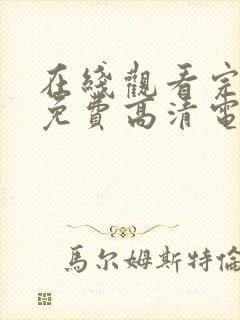 在綫觀看完
免費高清電
馬尔姆斯特倫